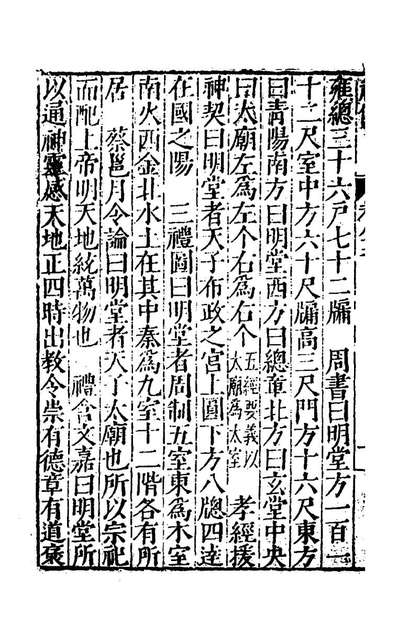 雍總三十六戶七十二牖　周書曰明堂方一百一
十二尺室中方六十尺牖高三尺門方十六尺東方
曰靑陽南方曰明堂西方曰總章北方曰玄堂中央
曰太廟左爲左个右爲右个五經要義以太廟爲太室　孝經援
神契曰明堂者天子布政之宮上圓下方八牕四逹
在國之陽　三禮圖曰明堂者周制五室東爲木室
南火西金北水土在其中秦爲九室十二階各有所
居　蔡邕月令論曰明堂者天子太廟也所以宗祀
而配上帝明天地統萬物也　禮含文嘉曰明堂所
以通神靈感天地正四時出教令崇有德章有道褒